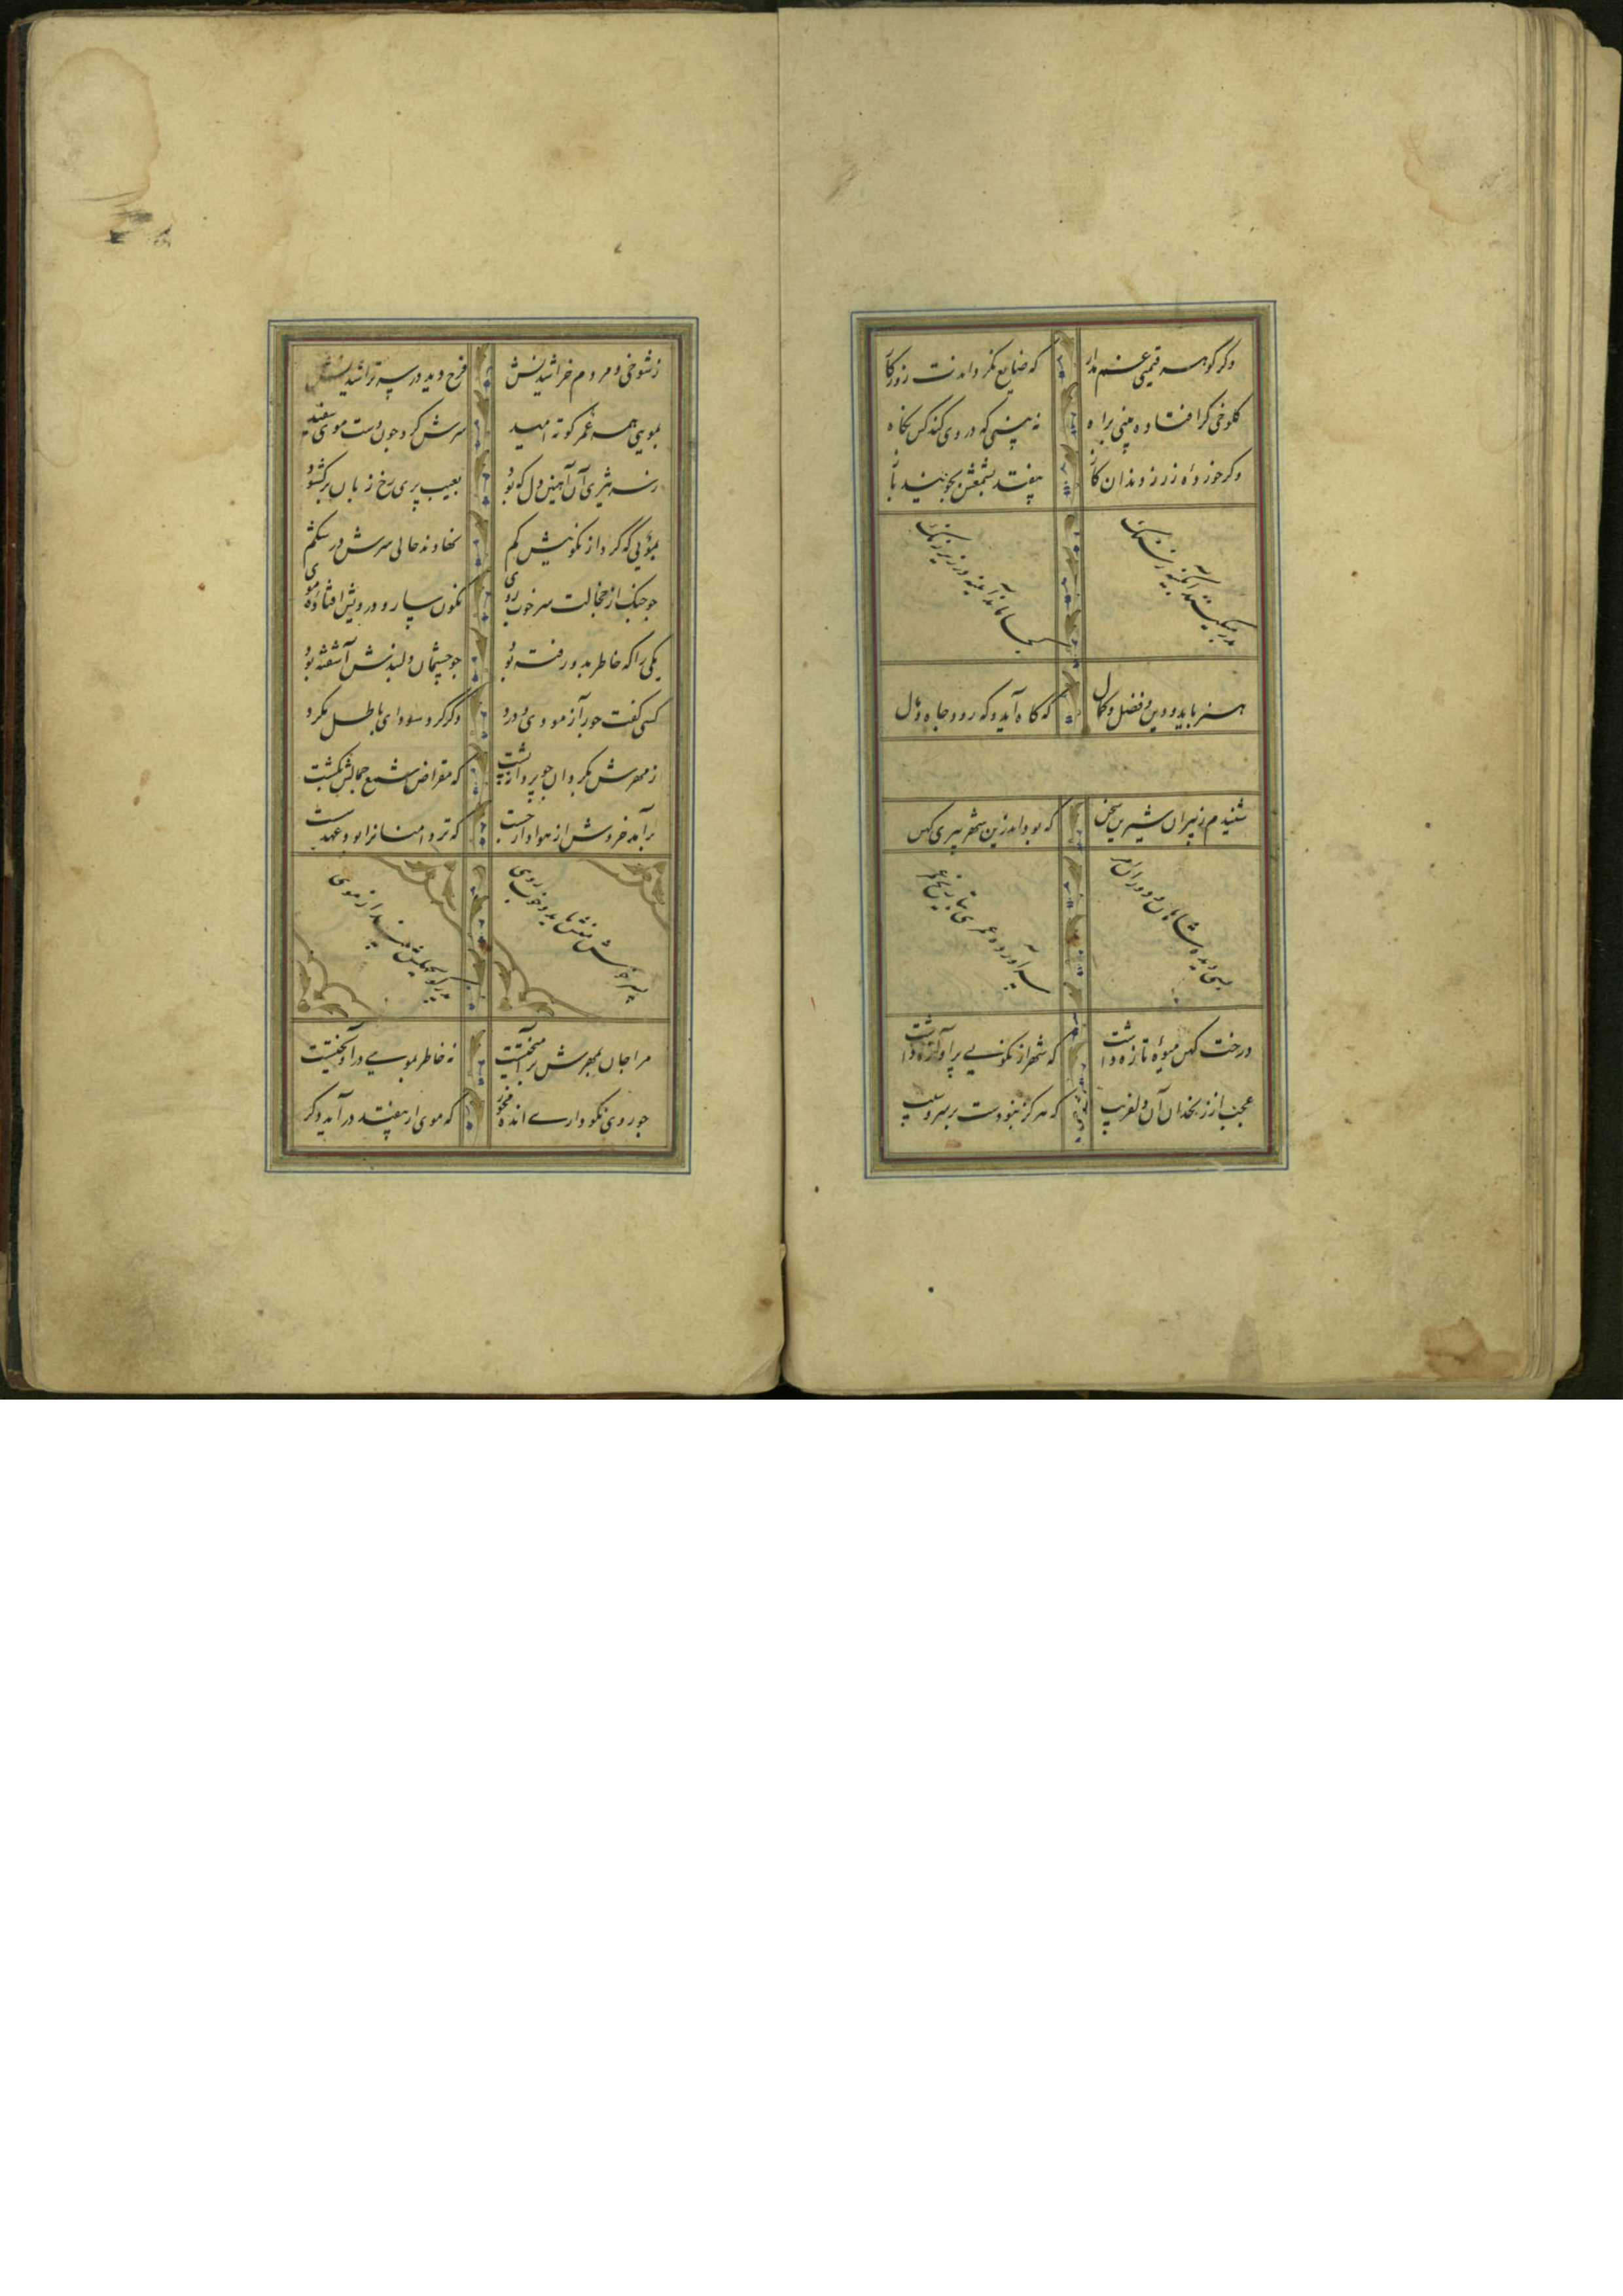 وکر کوهر قیمتی غم مدار که ضایع نکرداندت روزکار
کلوخی کر افتاده بینی براه نه بینی که در وی کند کس نکاه
وکر خورده زر ز دندان کاز بیفتد بشمعش بجویند باز
بدر میکنند آبکینه ز سنک کجا ماند آینه در زیر زنک
هنر باید و دین و فضل و کمال که کاه آید و که رود جاه و مال
شنیدم ز پیران شیرین سخن که بود اندرین شهر پیری کهن
بسی دیده شاهان و دوران و امر سر آورده عمری ز تاریخ عمرو
درخت کهن میوه تازه داشت که شهر از نکویی پر آوازه داشت
عجب از زنخدان آن دلفریب که هرکز نبودست بر سرو سیب
ز شوخی و مردم خراشیدنش فرح دید در سر تراشیدنش
بموسی همه عمر کوته امید سرش کرد چون دست موسی سفید
ز سر تیزی آن آهنین دل که بود بعیب پری رخ زبان برکشود
بمویی که کرد از نکوییش کم نهادند حالی سرش در شکم
چو چنک از خجالت سر خوب روی نکونسار و در پیش افتاده موی
یکی را که خاطر بدو رفته بود چو چشمان دلبندش آشفته بود
کسی کفت جور آزمودی و درد دکر کرد سودای باطل مکرد
ز مهرش بکردان چو پروانه پشت که مقراض شمع جمالش بکشت
برآمد خروش از هوادار چست که تردامنانرا بود عهد سست
پسر خوش منش باید و خوب روی پدر کو بجهلش بینداز موی
مرا جان بمهرش برآمیختست نه خاطر بمویی درآویختست
چو روی نکو داری انده مخور که موی ار بیفتد درآید دکر